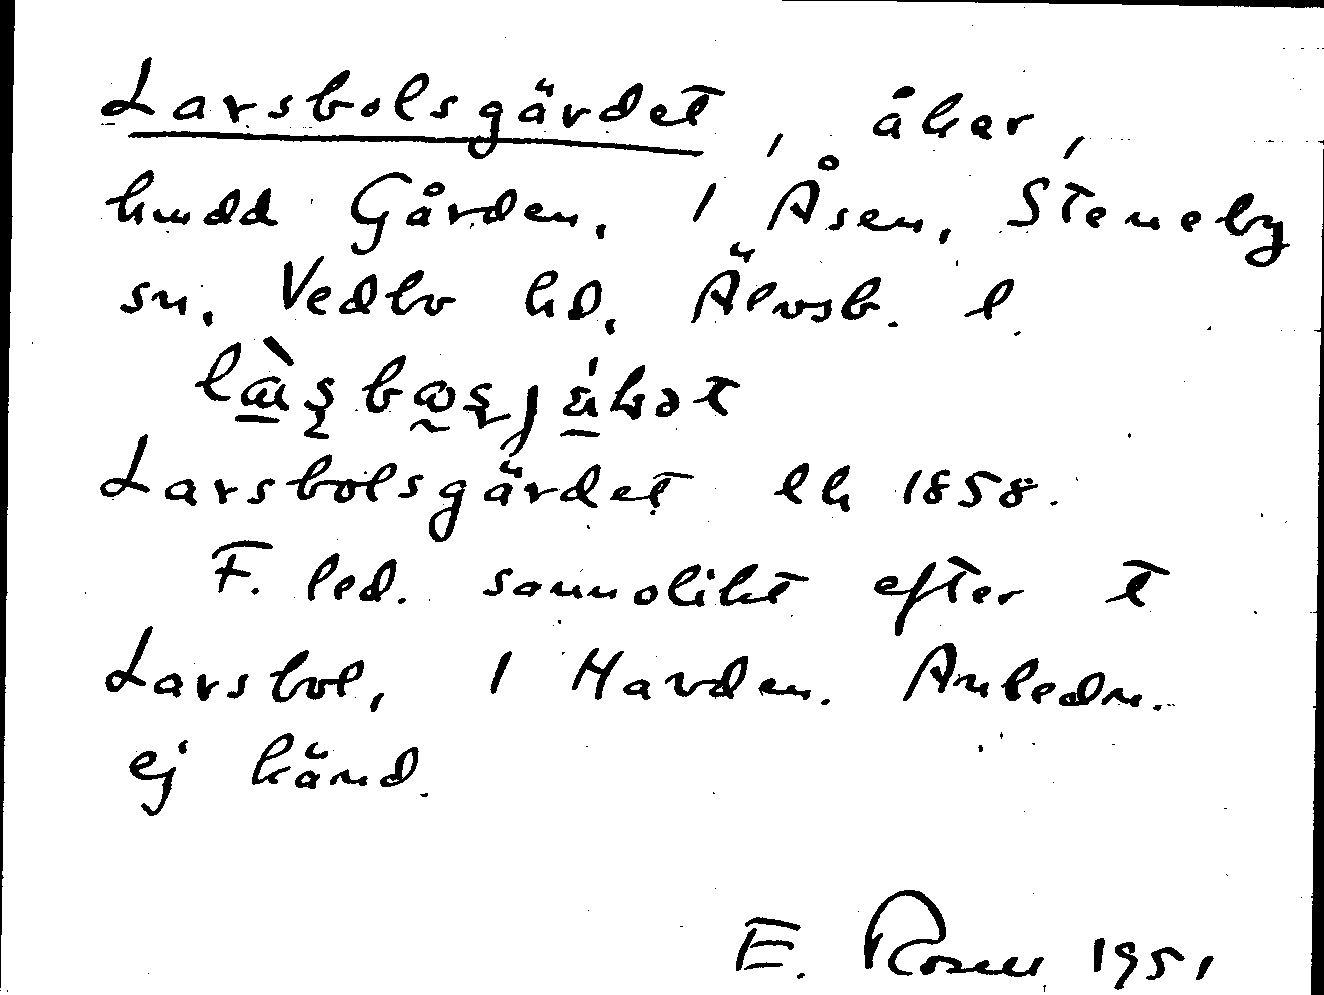 Larsbolsgärdet, åker,
hmdd Gården, 1 Åsen, Steneby
sn, Vedbo hd, Älvsb. l.
Larsbolsgärdet lh 1858.
F. led. sannolikt efter t
Larsbol, 1 Harden. Anledn.
ej känd.
E. Rosell 1951